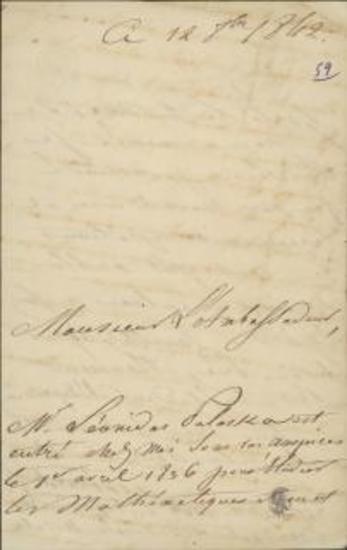 A 12 8bre 1862.
59
Monsieur L'Ambassadeur,
Mr. Léonidas Palaska est
entré chez moi sous vos auspices
le 1er avril 1856 pour étudier
les Mathématiques